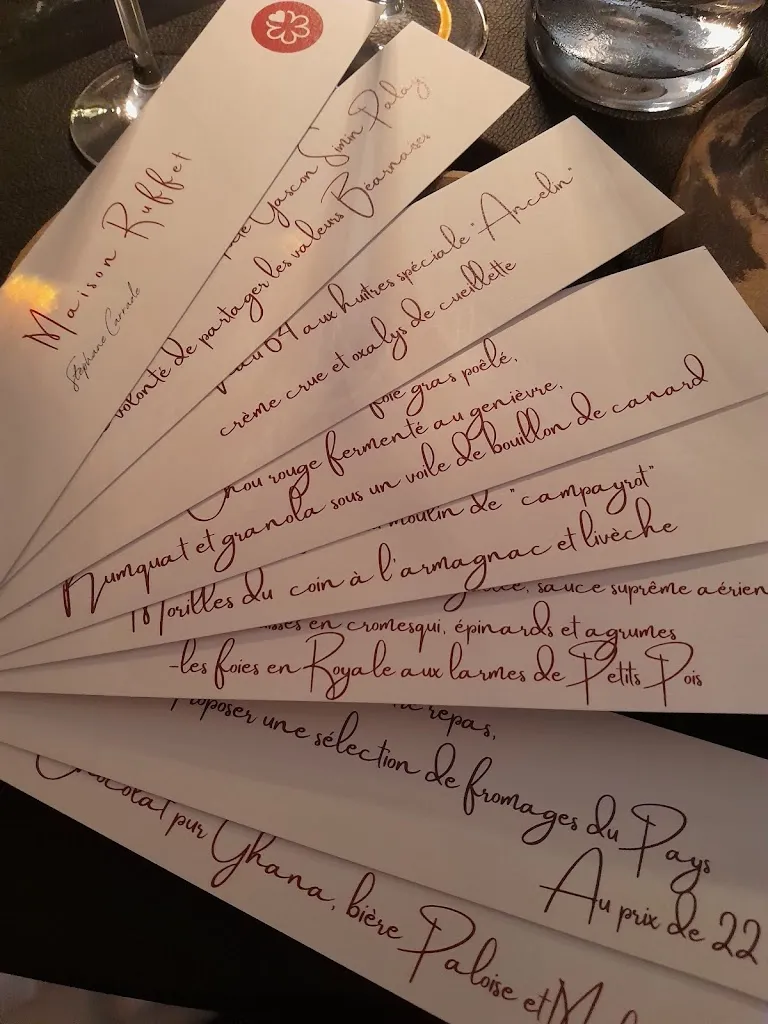 Maison Ruffet
Stéphane Carrade
Gascon Simin Palay
volonté de partager les valeurs Béarnaises
au 64 aux huîtres spéciale "Ancelin"
crème crue et oxalys de cueillette
foie gras poêlé,
rouge fermenté au genièvre,
Kumquat et granola sous un voile de bouillon de canard
moulin de "campayrot"
Morilles du coin à l'armagnac et livèche
sauce suprême aérien
en cromesqui, épinards et agrumes
-les foies en Royale aux larmes de Petits Pois
repas,
Proposer une sélection de fromages du Pays
Au prix de 22
Chocolat pur Ghana, bière Paloise et